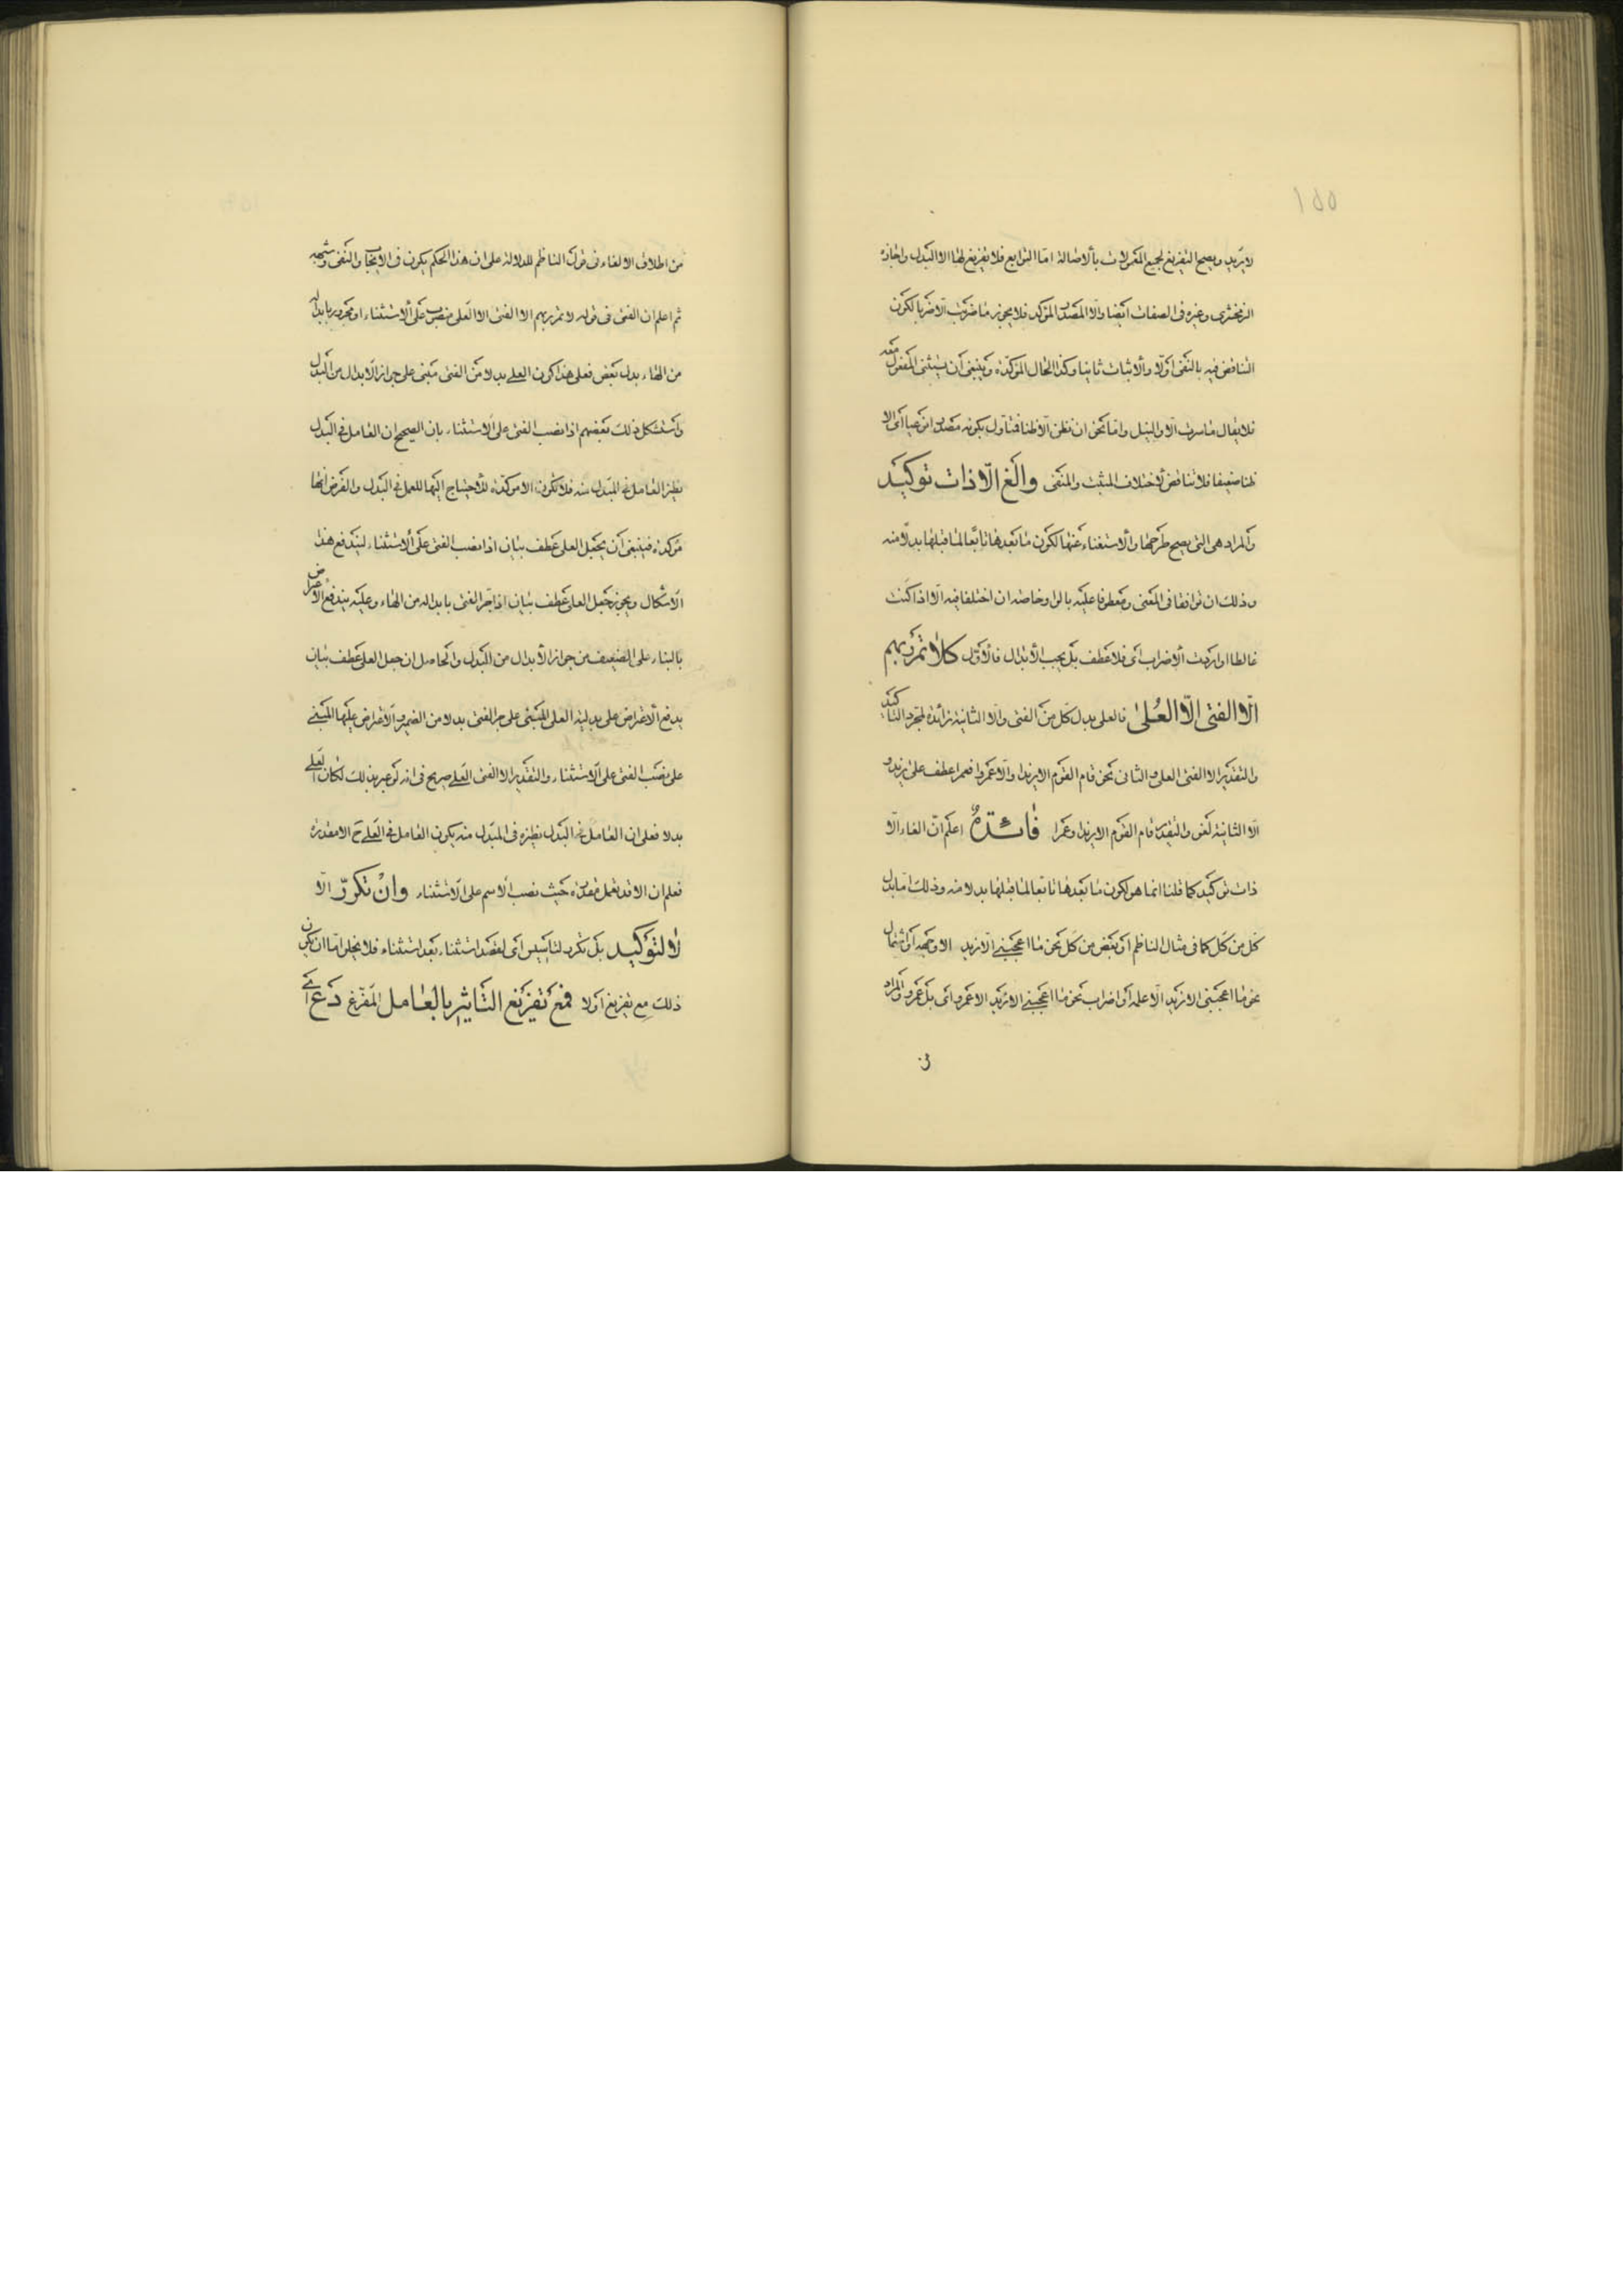 ١٥٥
لا يزيد ويصح التفريغ لجميع المعمولات بالاصالة اما التوابع فلا تفريغ لها الا البدل واجازه
الزمخشرى وغيره فى الصفات ايضا والا المصدر المؤكد فلا يجوز ما ضربت الا ضربا لكون
التناقض فيه بالنفى اولا والاثبات ثانيا وكذا الحال المؤكدة وينبغى ان يستثنى المفعول معه
فلا يقال ما سرت الا والنيل واما نحو ان نظن الا ظنا فتاول بكونه مصدرا نوعيا اى الا
ظنا ضعيفا فلا تناقض لاختلاف المثبت والمنفى والغ الّا ذات توكيد
والمراد هى التى يصح طرحها والاستغناء عنها لكون ما بعدها تابعا لما قبلها بدلا منه
وذلك ان توافقا فى المعنى ومعطوفا عليه بالواو خاصة ان اختلفا فيه الا اذا كنت
غالطا او اردت الاضراب اى فلا عطف بل يجب الابدال فالاول كلا تمرر بهم
الّا الفتى الّا العُلى فالعلى بدل كل من الفتى والا الثانية زائدة لمجرد التاكيد
والتقدير الا الفتى العلى والثانى نحو قام القوم الا زيدا والا عمروا فعمرا عطف على زيد و
الا الثانية لغو والتقدير قام القوم الا زيدا وعمرا فائدةٌ اعلم انّ الغاء الّا
ذات توكيد كما قلنا انما هو لكون ما بعدها تابعا لما قبلها بدلا منه وذلك اما بدل
كل من كل كما فى مثال الناظم او بعض من كل نحو ما اعجبنى الا زيد الا وجهه او اشتمال
نحو ما اعجبنى الا زيد الا علمه او اضراب نحو ما اعجبنى الا زيد الا عمرو اى بل عمرو والمراد
من
من اطلاق الالغاء فى قول الناظم للدلالة على ان هذا الحكم يكون فى الايجاب والنفى وشبهه
ثم اعلم ان الفتى فى قوله لا تمرر بهم الا الفتى الا العلى منصوب على الاستثناء او مجرور بابداله
من الهاء بدل بعض فعلى هذا كون العلى بدلا من الفتى مبنى على جواز الابدال من البدل
واستشكل ذلك بعضهم اذا نصب الفتى على الاستثناء بان الصحيح ان العامل فى البدل
نظير العامل فى المبدل منه فلا تكون الا مؤكدة للاحتياج اليها للعمل فى البدل والفرض انها
مؤكدة فينبغى ان يجعل العلى عطف بيان اذا نصب الفتى على الاستثناء ليندفع هذا
الاشكال ويجوز جعل العلى عطف بيان اذا جر الفتى بابداله من الهاء وعليه يندفع الاعتراض
بالبناء على الضعيف من جواز الابدال من المبدل والحاصل ان جعل العلى عطف بيان
يدفع الاعتراض على بدلية العلى المبنى على جر الفتى بدلا من الضمير والاعتراض عليها المبنى
على نصب الفتى على الاستثناء والتقدير الا الفتى العلى صريح فى انه لو عبر بذلك لكان العلى
بدلا فعلى ان العامل فى البدل نظيره فى المبدل منه يكون العامل فى العلى ح الا مقدرة
فعلم ان الا قد تعمل مقدرة حيث نصب الاسم على الاستثناء وانْ تكررّ الا
لا لتوكيد بل تكرر لتاسيس اى لقصد استثناء بعد استثناء فلا يخلو اما ان يكون
ذلك مع تفريغ اولا فمع تفريغ التاثير بالعامل المفرغ دع اى